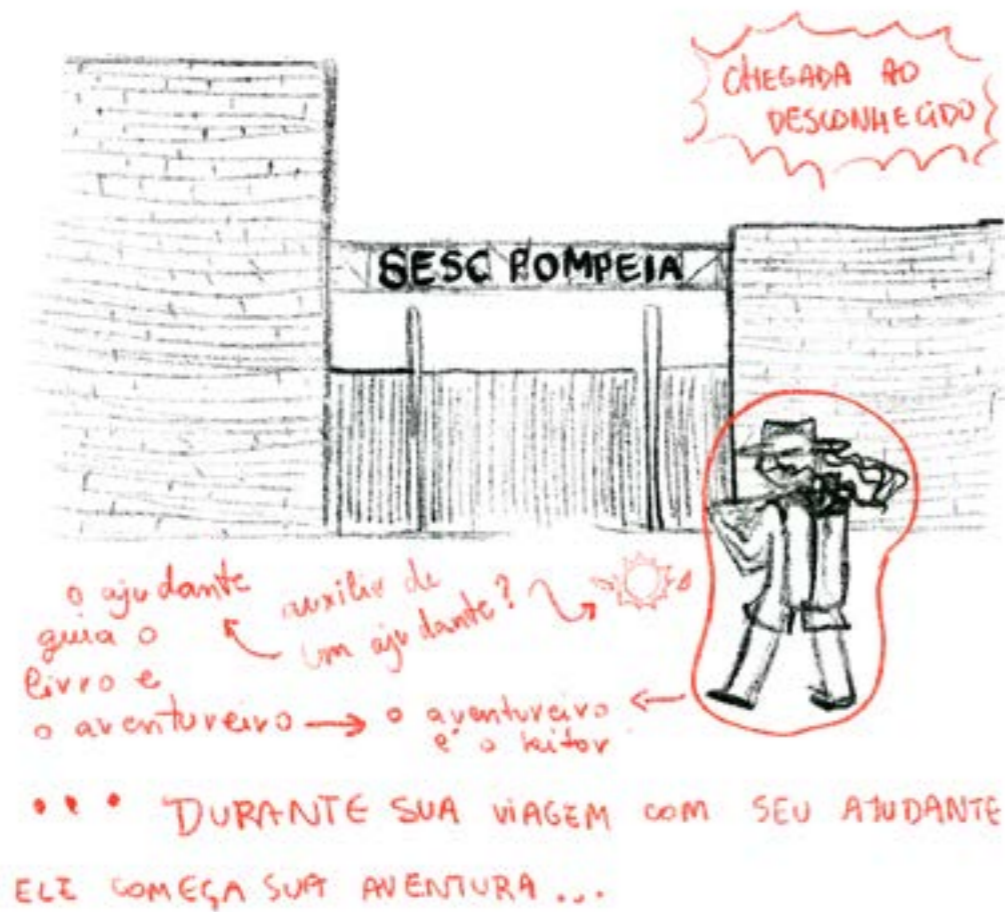 CHEGADA AO
DESCONHECIDO
SESC POMPEIA
o ajudante
guia o
livro e
o aventureiro
auxílio de
um ajudante?
o aventureiro
é o leitor
... DURANTE SUA VIAGEM COM SEU AJUDANTE
ELE COMEÇA SUA AVENTURA...